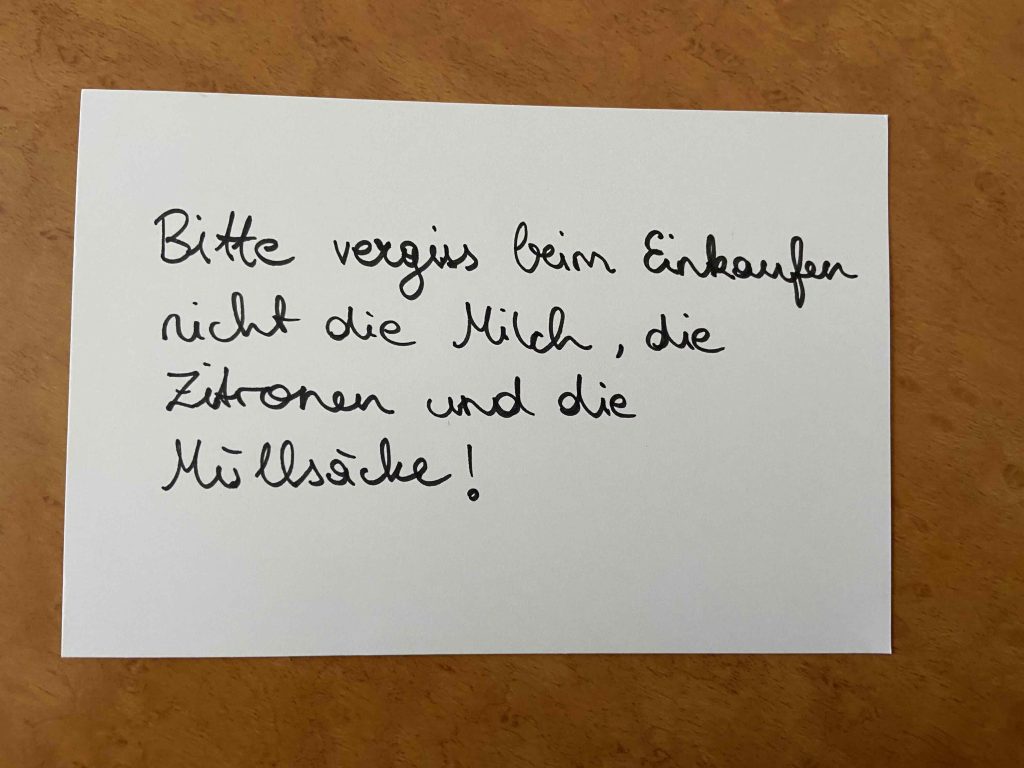 Bitte vergiss beim Einkaufen
nicht die Milch, die
Zitronen und die
Müllsäcke!